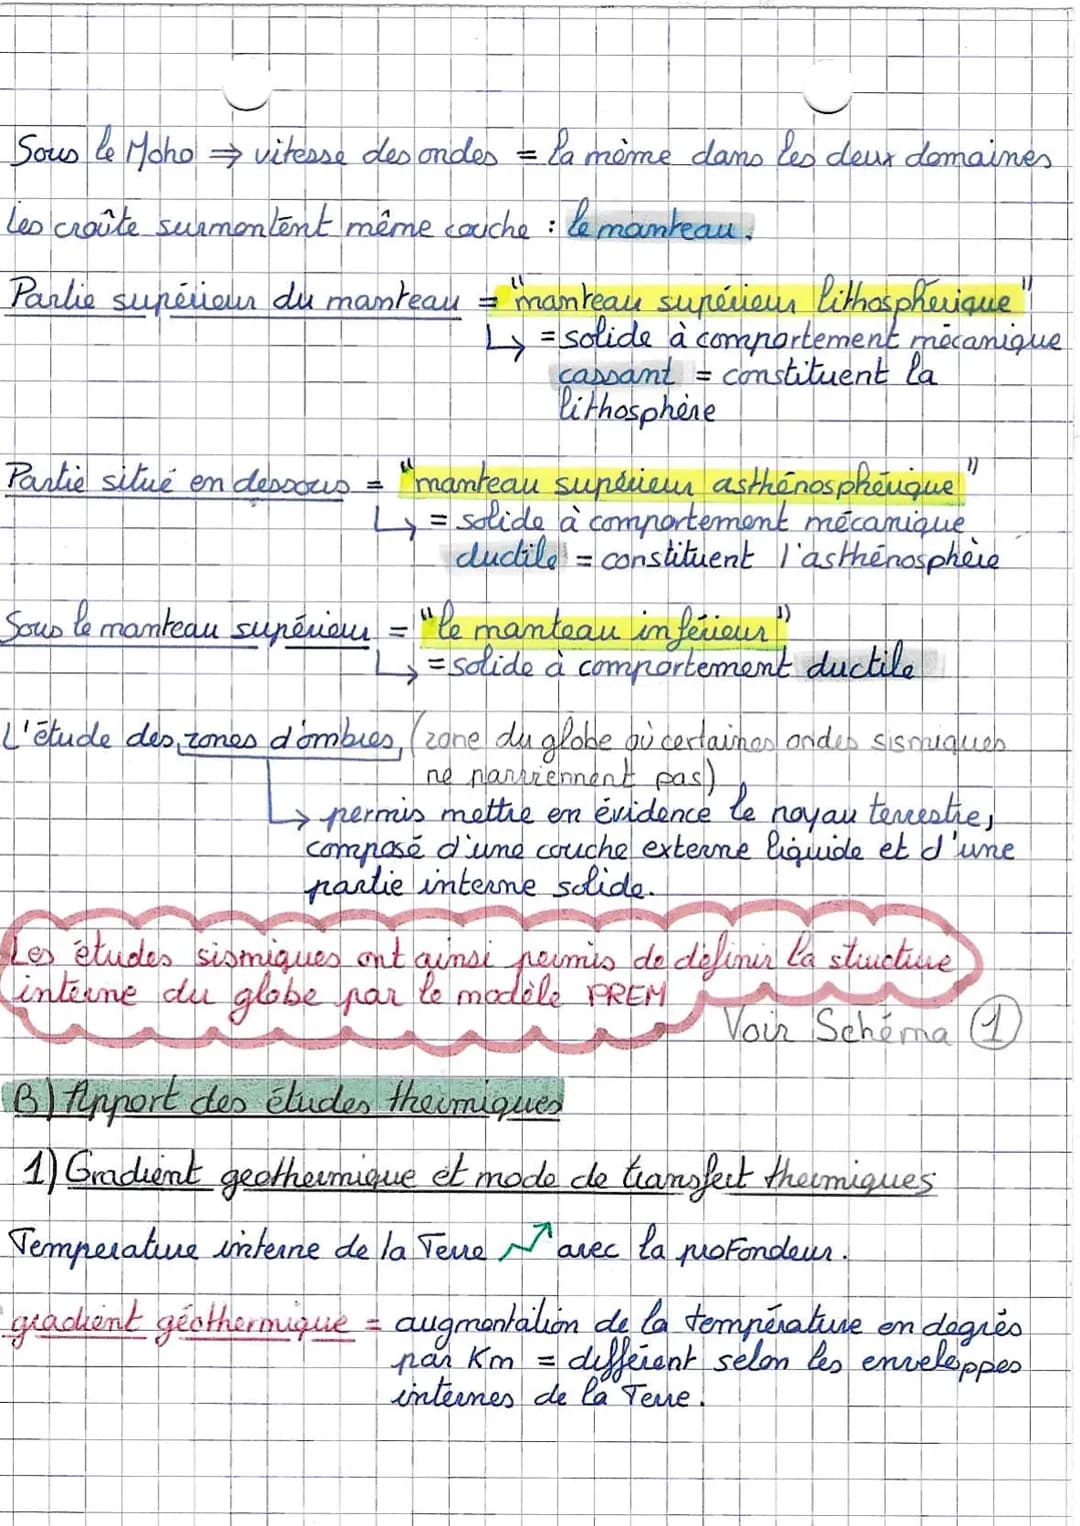 Sous le Moho ⇒ vitesse des ondes = la même dans les deux domaines
les croûte surmontent même couche : le manteau.
Partie supérieur du manteau = "manteau supérieur lithosphérique"
↳ = solide à comportement mécanique
cassant = constituent la
lithosphère
Partie situé en dessous = "manteau supérieur asthénosphérique"
↳ = solide à comportement mécanique
ductile = constituent l'asthénosphère
Sous le manteau supérieur = "le manteau inférieur"
↳ = solide à comportement ductile
L'étude des zones d'ombres, (zone du globe où certaines ondes sismiques
ne parviennent pas)
↳ permis mettre en évidence le noyau terrestre,
composé d'une couche externe liquide et d'une
partie interne solide.
Les études sismiques ont ainsi permis de définir la structure
interne du globe par le modèle PREM
Voir Schéma 1
B) Apport des études thermiques
1) Gradient geothermique et mode de transfert thermiques
Temperature interne de la Terre ↗ avec la profondeur.
gradient géothermique = augmentation de la température en degrès
par Km = différent selon les enveloppes
internes de la Terre.